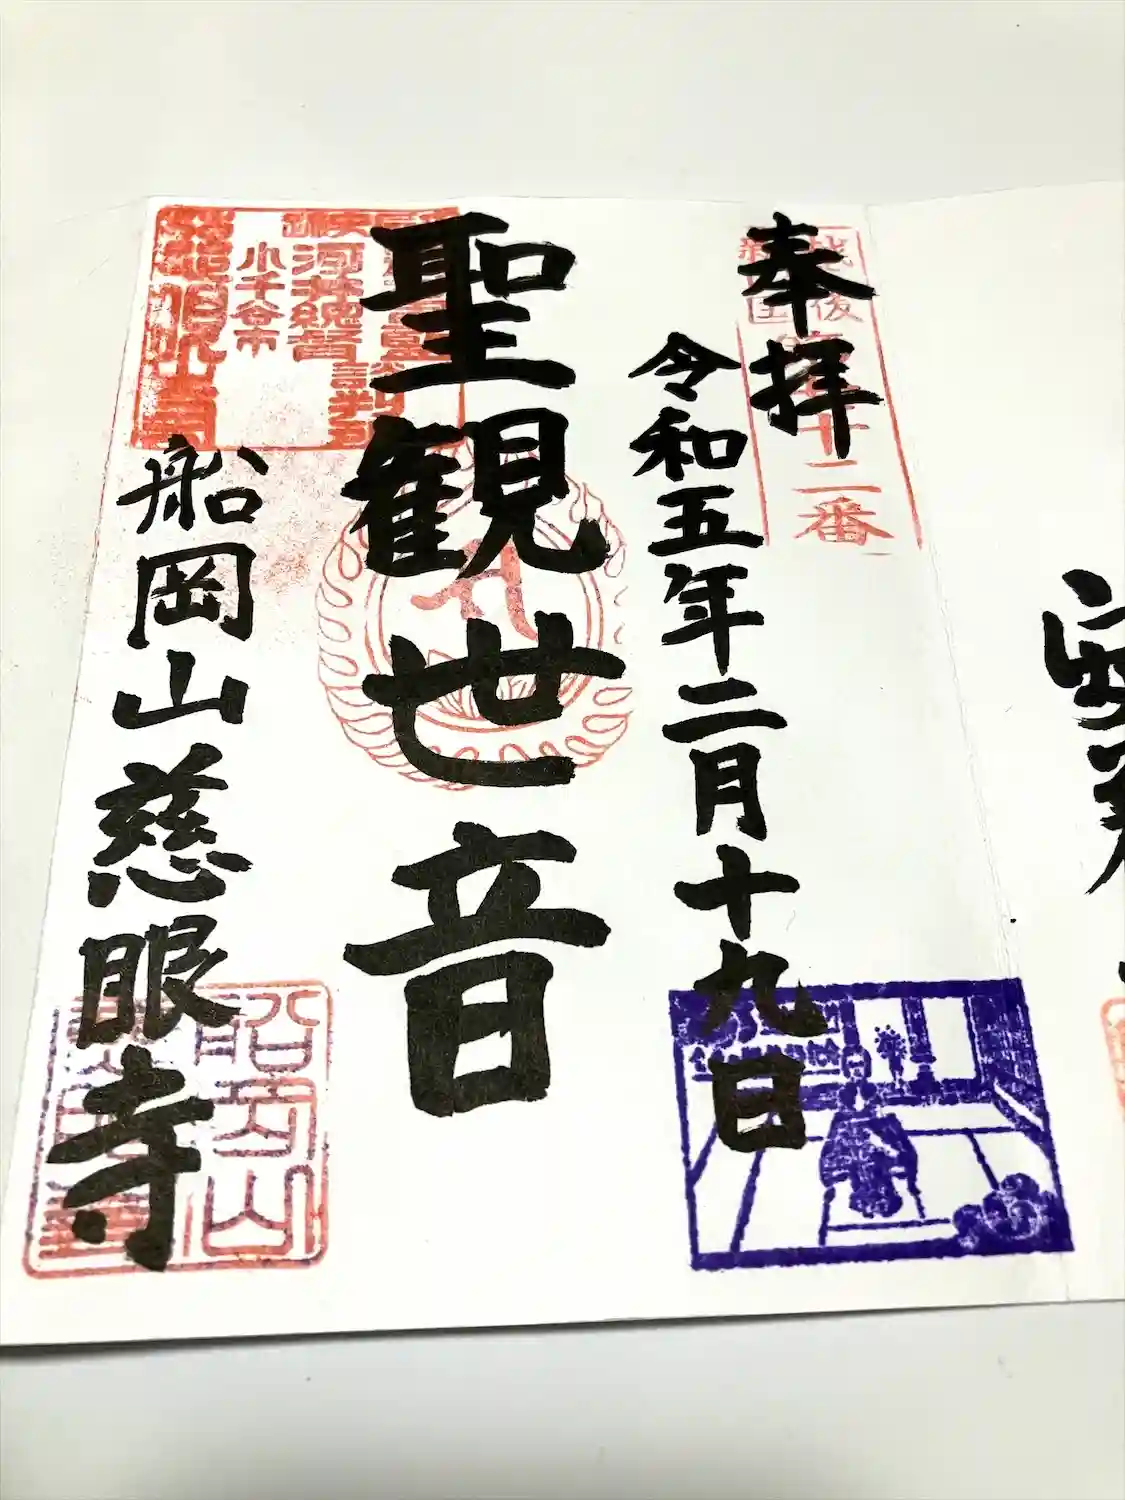 奉拝
令和五年二月十九日
聖観世音
船岡山慈眼寺
十二番
河井総督
小千谷市
船岡山